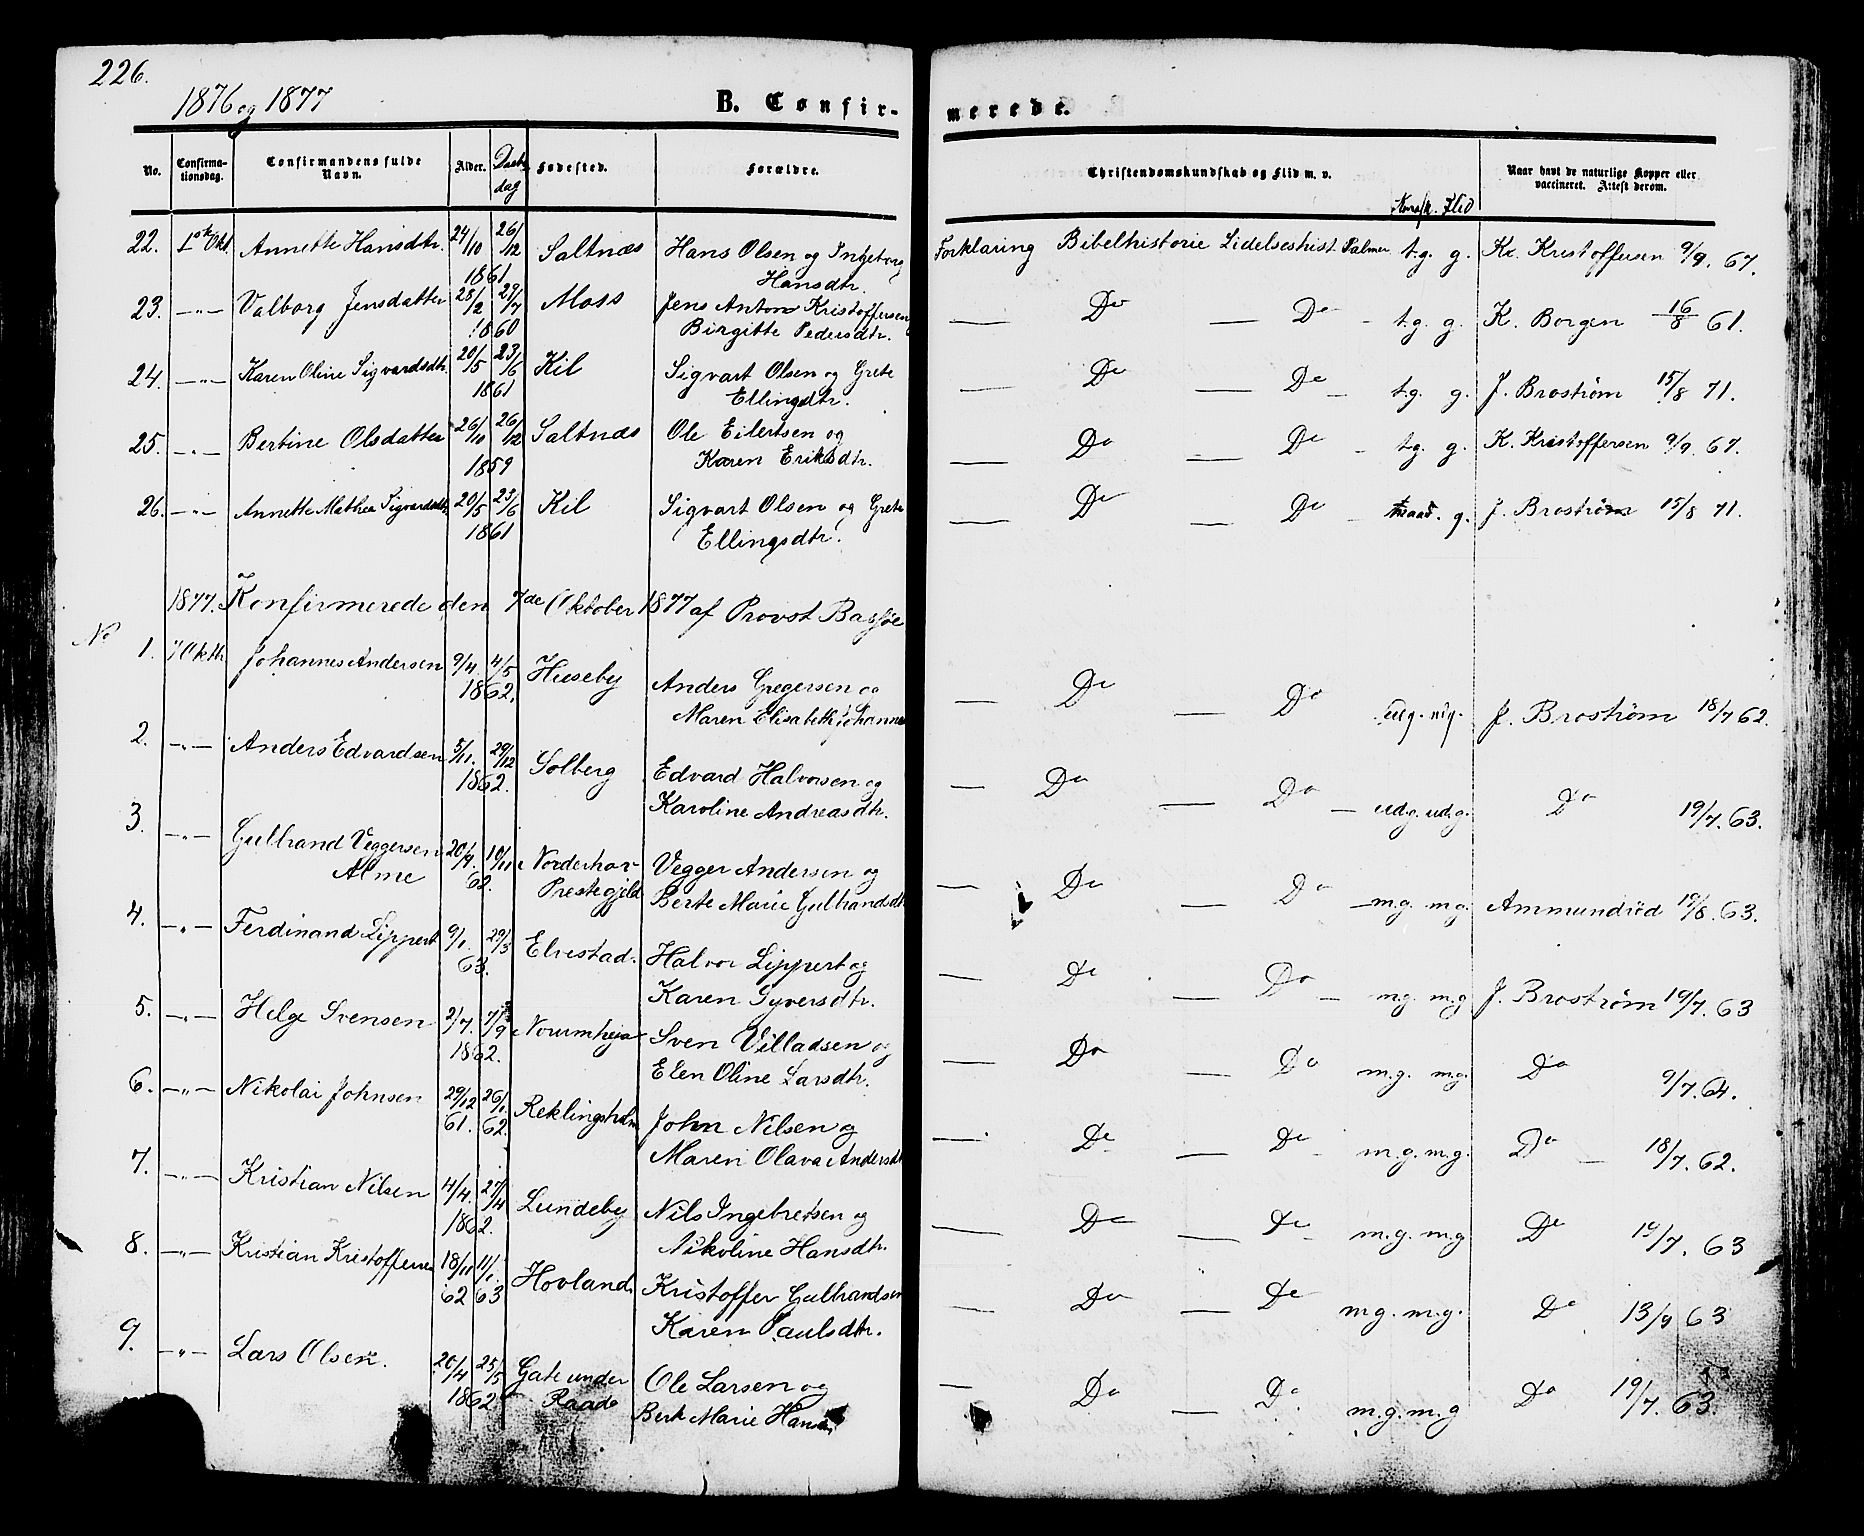 226.
1876 og 1877
B. Confir-
merede.
No.
Confirma-
tionsdag.
Confirmandens fulde
Navn.
Alder.
Daabs
dag
Fødested.
Forældre.
Christendomskundskab og Flid m. v.
Flid
Naar havt de naturlige Kopper eller
vaccineret. Attest derom.
22. 1ste Okt. Annette Hansdtr. 24/10 26/12 Saltnæs Hans Olsen og Ingeborg Forklaring Bibelhistorie Lidelseshist. Salmer t.g. g. Kr. Kristoffersen 9/9. 67.
1861 Hansdtr.
23. —"— Valborg Jensdatter 28/2 29/7 Moss Jens Anton Kristoffersen — Do — Do - t.g. g. K. Borgen 16/8 61.
1860 Birgitte Pedersdtr.
24. —"— Karen Oline Sigvardsdtr. 20/5 23/6 Kil Sigvart Olsen og Grete — Do — Do — t.g. g. J. Broström 15/8 71.
1861 Ellingsdtr.
25. —"— Bertine Olsdatter 26/10 26/12 Saltnæs Ole Eilertsen og — Do — Do - t.g. g. K. Kristoffersen 9/9. 67.
1859 Karen Eriksdtr.
26. —"— Annette Mathea Sigvardsdtr. 20/5 23/6 Kil Sigvart Olsen og Grete — Do — Do - maad. g. J. Broström 15/8 71.
1861 Ellingsdtr.
1877. Konfirmerede den 7de Oktober 1877 af Provst Bassøe
No
1. 7 Oktb Johannes Andersen 9/4 4/5 Huseby Anders Gregersen og — Do — Do udg. mg. J. Broström 18/7 62.
1862. Maren Elisabeth Johannes
2. —"— Anders Edvardsen 5/11. 29/12 Solberg Edvard Halvorsen og — Do — Do — udg. udg. Do 19/7. 63.
1862. Karoline Andreasdtr.
3. —"— Gulbrand Veggersen 20/9. 10/11 Norderhov Vegger Andersen og — Do — Do — m.g. m.g. Ammundrød 19/8. 63.
Alme 62. Prestegjeld Berte Marie Gulbrandsdtr
4. —"— Ferdinand Lippert 9/1. 29/3 Elvestad. Halvor Lippert og — Do — Do — m.g. m.g J. Broström 19/7. 63
63. Karen Syversdtr.
5. —"— Helge Svensen 2/7. 7/9 Norumheja Sven Villadsen og — Do — Do m.g. m.g. Do 9/7. 64.
1862. Elen Oline Larsdtr.
6. —"— Nikolai Johnsen 29/12 26/1 Reklingsholm John Nilsen og — Do — Do - m.g. m.g. Do — 18/7. 62.
61. 62. Maren Olava Andersdt
7. —"— Kristian Nilsen 4/4. 27/4 Lundeby Nils Ingebretsen og — Do — Do - m.g. m.g Do 19/7. 63
1862. Nikoline Hansdtr.
8. —"— Kristian Kristoffersen 18/11 11/1. Hovland. Kristoffer Gulbrandsen — Do — Do m.g. m.g. Do 13/9 63
62 63 Karen Paulsdtr.
9. —"— Lars Olsen. 20/4 25/5 Gate under Ole Larsen og — Do — Do m.g. m.g Do 19/7. 63.
1862 Raade Berte Marie Hansdtr